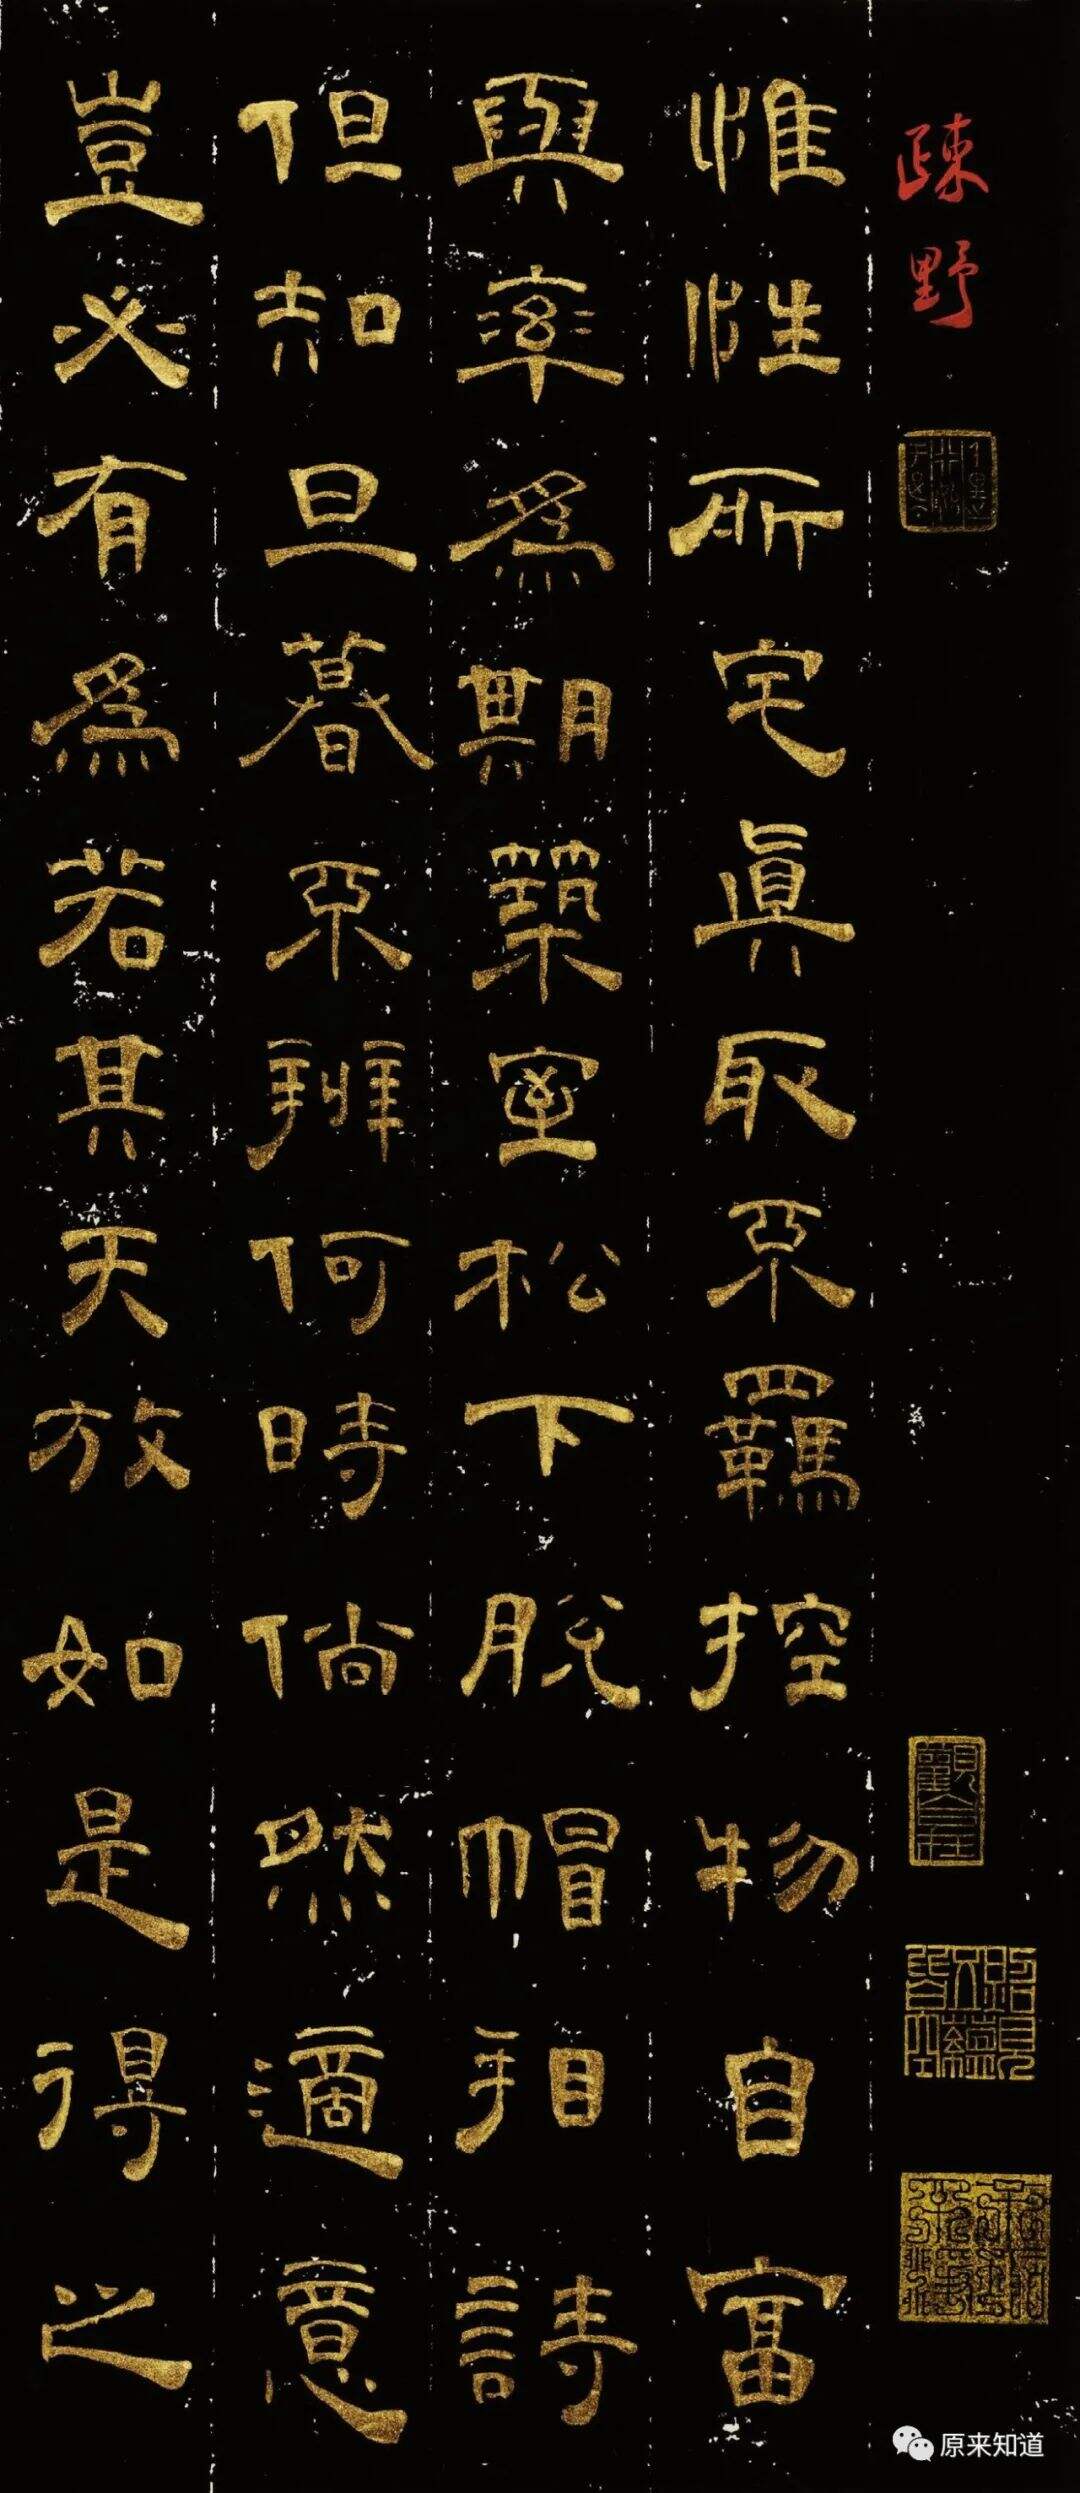 疎野
觀自在
照見五蘊皆空
惟性所宅真取不羈控物自富
與率為期築室松下脫帽看詩
但知旦暮不辨何時倘然適意
豈必有為若其天放如是得之
原来知道